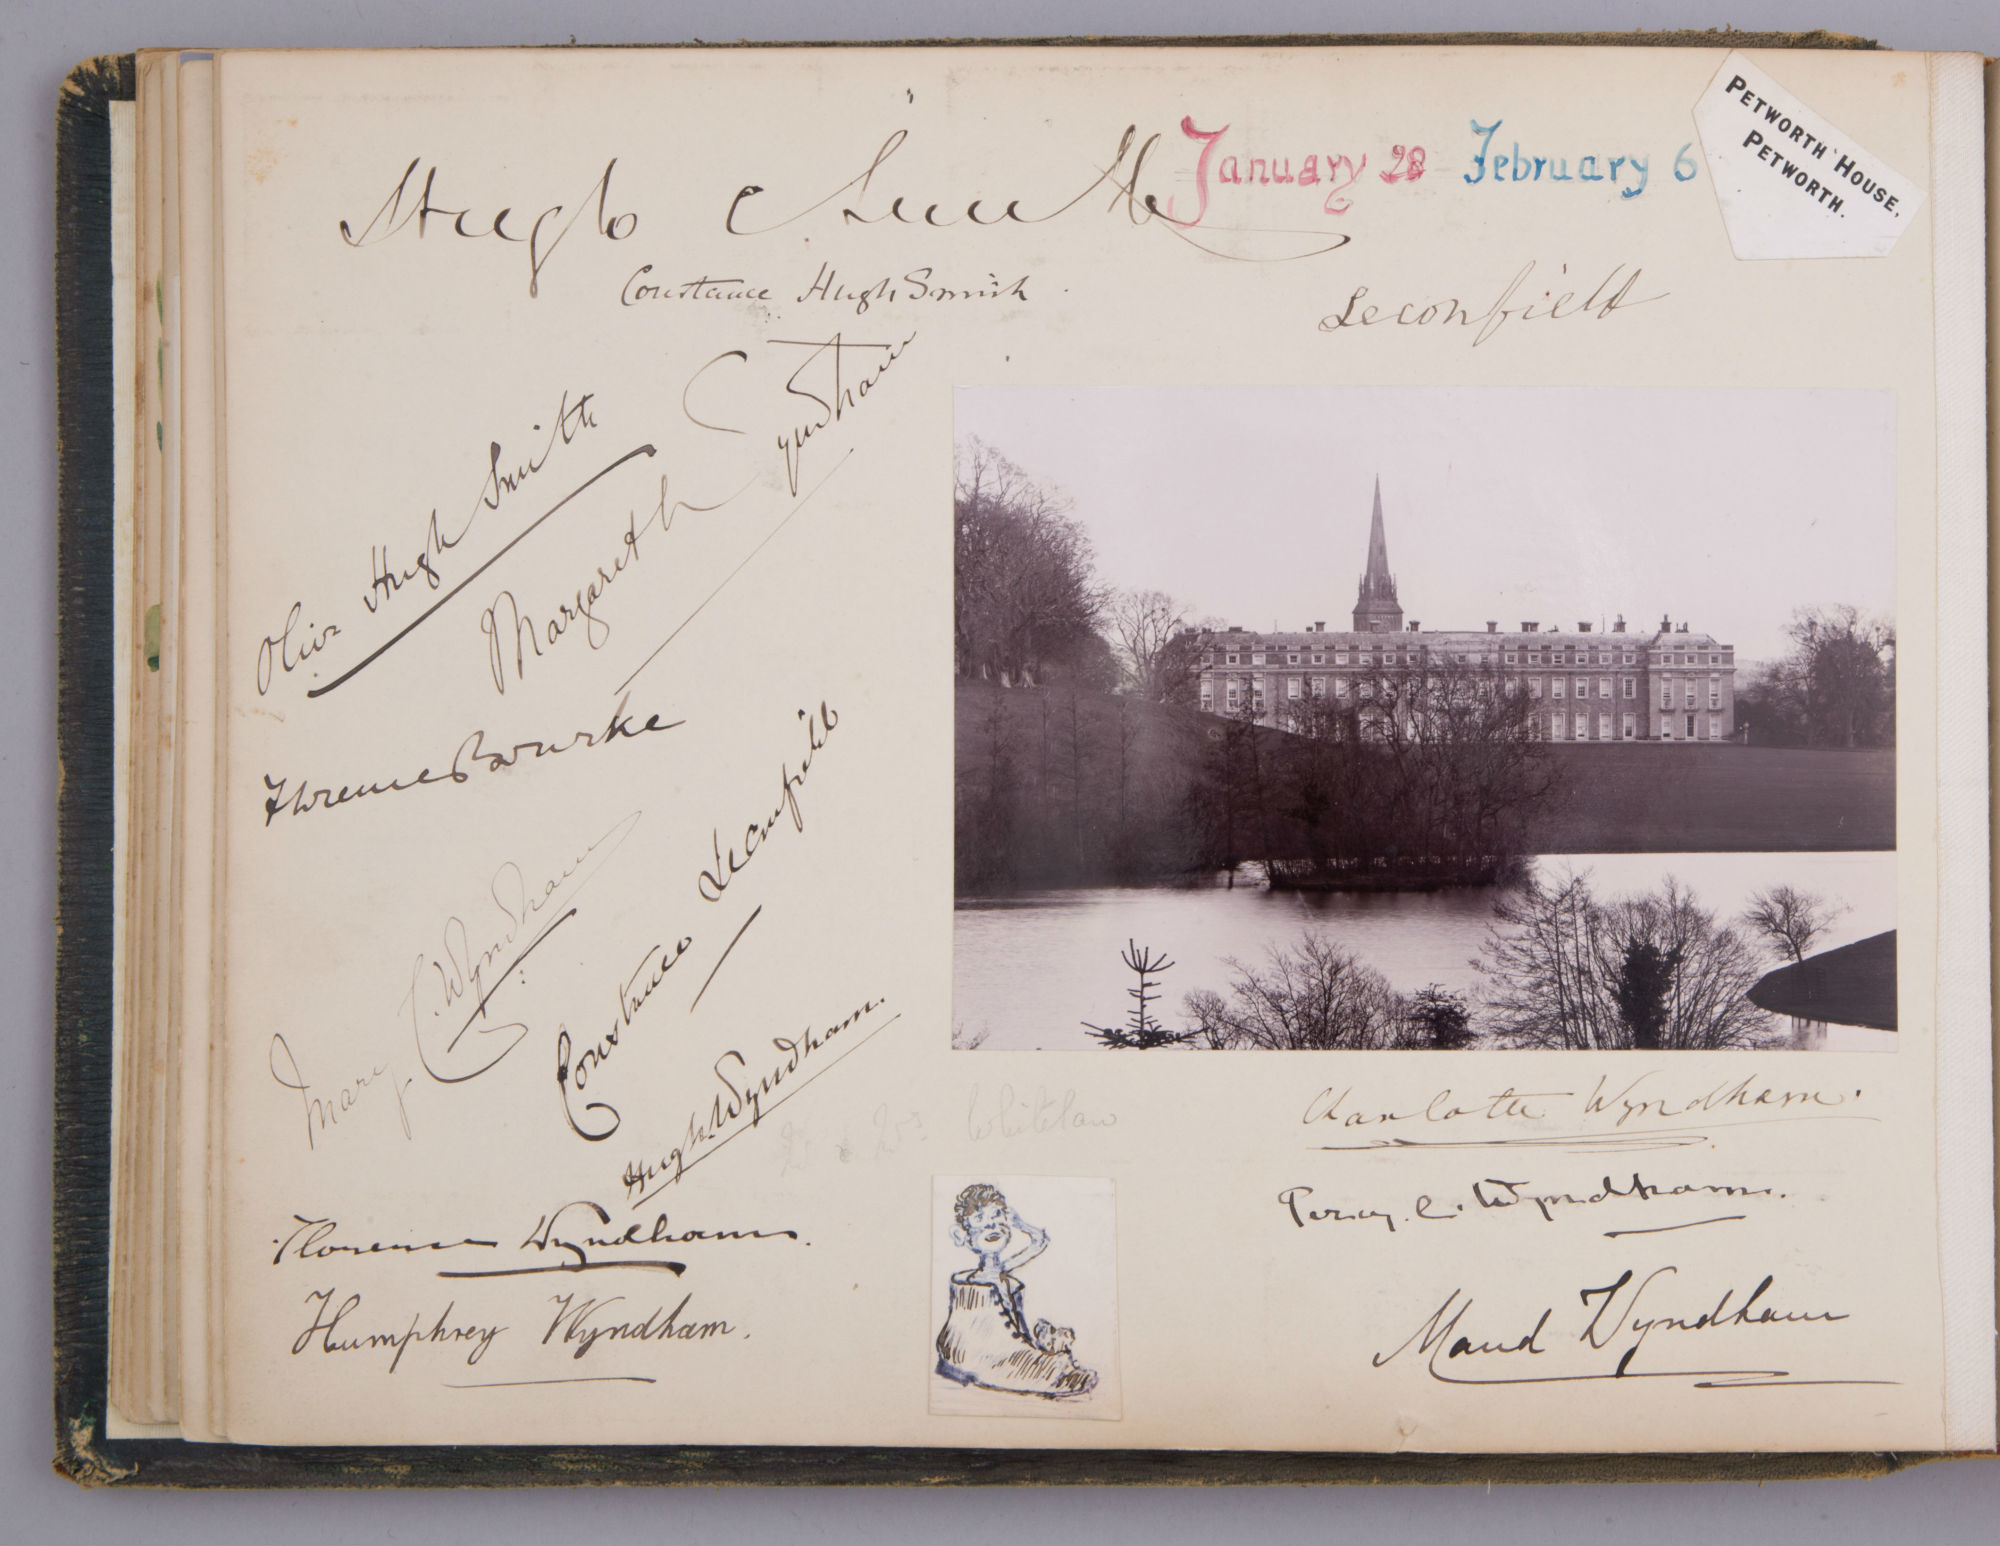 Hugh Smith
January 28 February 6
PETWORTH HOUSE,
PETWORTH.
Constance Hugh Smith
Leconfield
Olive Hugh Smith
Margaret Wyndham
Florence Bourke
Mary C. Wyndham
Constance Leconfield
Hugh. Wyndham.
Whitelaw
Florence Wyndham.
Humphrey Wyndham.
Charlotte Wyndham.
Percy. C. Wyndham.
Maud Wyndham